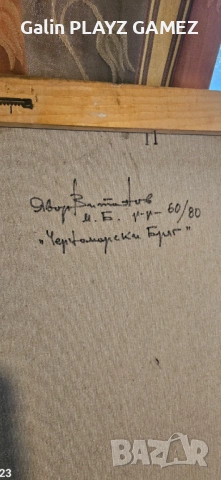 Galin PLAYZ GAMEZ
Явор Витанов
м. Б. р-р 60/80
"Черноморски Бряг"
23
bazar.bg